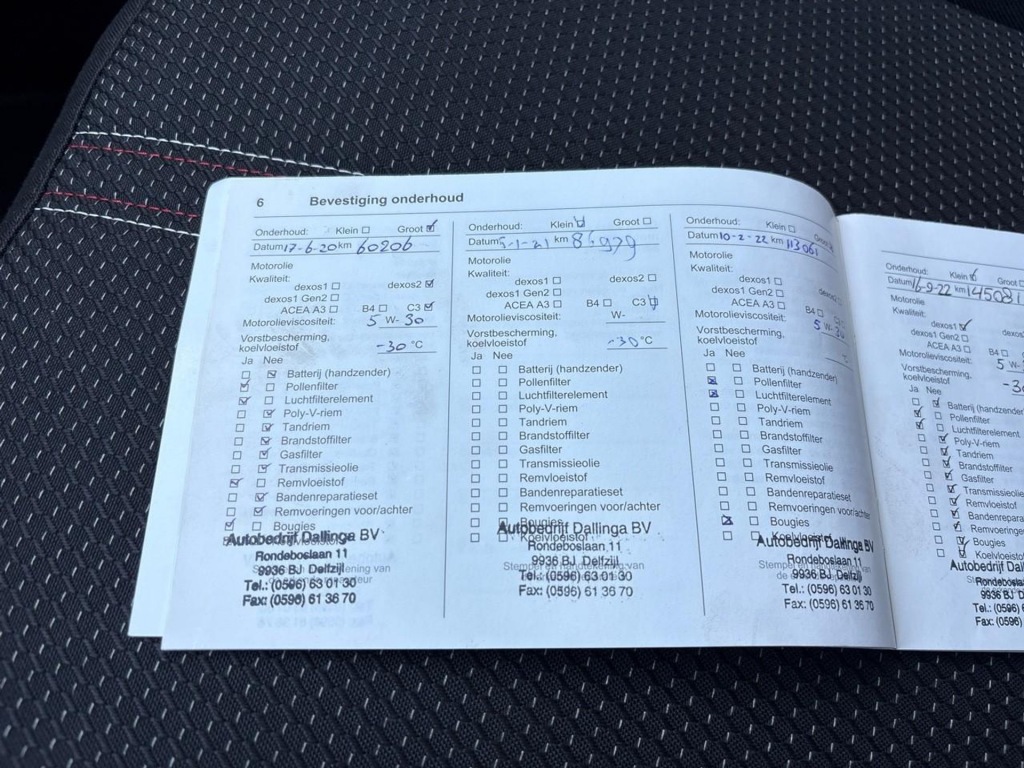 6 Bevestiging onderhoud
Onderhoud: Klein ☐ Groot ☑
Datum 17-6-20 km 60206
Motorolie
Kwaliteit:
dexos1 ☐ dexos2 ☑
dexos1 Gen2 ☐
ACEA A3 ☐ B4 ☐ C3 ☑
Motorolieviscositeit: 5 W- 30
Vorstbescherming,
koelvloeistof -30 °C
Ja Nee
☐ ☑ Batterij (handzender)
☑ ☐ Pollenfilter
☑ ☐ Luchtfilterelement
☐ ☑ Poly-V-riem
☐ ☑ Tandriem
☐ ☑ Brandstoffilter
☐ ☑ Gasfilter
☐ ☑ Transmissieolie
☑ ☐ Remvloeistof
☐ ☑ Bandenreparatieset
☐ ☑ Remvoeringen voor/achter
☑ ☐ Bougies
Autobedrijf Dallinga BV
Rondeboslaan 11
9936 BJ Delfzijl
Tel.: (0596) 63 01 30
Fax: (0596) 61 36 70
Onderhoud: Klein ☑ Groot ☐
Datum 5-1-21 km 86979
Motorolie
Kwaliteit:
dexos1 ☐ dexos2 ☐
dexos1 Gen2 ☐
ACEA A3 ☐ B4 ☐ C3 ☑
Motorolieviscositeit: W-
Vorstbescherming,
koelvloeistof -30 °C
Ja Nee
☐ ☐ Batterij (handzender)
☐ ☐ Pollenfilter
☐ ☐ Luchtfilterelement
☐ ☐ Poly-V-riem
☐ ☐ Tandriem
☐ ☐ Brandstoffilter
☐ ☐ Gasfilter
☐ ☐ Transmissieolie
☐ ☐ Remvloeistof
☐ ☐ Bandenreparatieset
☐ ☐ Remvoeringen voor/achter
☐ ☐ Bougies
☐ ☐ Koelvloeistof
Autobedrijf Dallinga BV
Rondeboslaan 11
9936 BJ Delfzijl
Tel.: (0596) 63 01 30
Fax: (0596) 61 36 70
Onderhoud: Klein ☐ Groot
Datum 10-2-22 km 113061
Motorolie
Kwaliteit:
dexos1 ☐
dexos1 Gen2 ☐
ACEA A3 ☐ B4 ☐
Motorolieviscositeit: 5 W- 30
Vorstbescherming,
koelvloeistof °C
Ja Nee
☐ ☐ Batterij (handzender)
☒ ☐ Pollenfilter
☒ ☐ Luchtfilterelement
☐ ☐ Poly-V-riem
☐ ☐ Tandriem
☐ ☐ Brandstoffilter
☐ ☐ Gasfilter
☐ ☐ Transmissieolie
☐ ☐ Remvloeistof
☐ ☐ Bandenreparatieset
☐ ☐ Remvoeringen voor/achter
☒ ☐ Bougies
☐ ☐ Koelvloeistof
Autobedrijf Dallinga BV
Rondeboslaan 11
9936 BJ Delfzijl
Tel.: (0596) 63 01 30
Fax: (0596) 61 36 70
Onderhoud: Klein ☑ Groot ☐
Datum 16-9-22 km 145081
Motorolie
Kwaliteit:
dexos1 ☑
dexos1 Gen2 ☐
ACEA A3 ☐ B4 ☐
Motorolieviscositeit: 5 W-
Vorstbescherming,
koelvloeistof
Ja Nee
☐ ☑ Batterij (handzender)
☑ ☐ Pollenfilter
☑ ☐ Luchtfilterelement
☐ ☑ Poly-V-riem
☐ ☑ Tandriem
☐ ☑ Brandstoffilter
☐ ☑ Gasfilter
☐ ☑ Transmissieolie
☐ ☑ Remvloeistof
☐ ☑ Bandenrepara
☐ ☑ Remvoeringen
☐ ☑ Bougies
☐ ☑ Koelvloeistof
Autobedrijf Dall
Rondebosla
9936 BJ D
Tel.: (0596) 6
Fax: (0596)